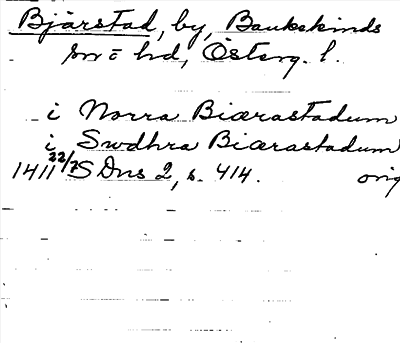 Bjärstad, by, Bankekinds
sn o hd, Österg. l.
i Norra Biærastadum
i Swdhra Biærastadum
1411 22/7 SDns 2, s. 414. orig